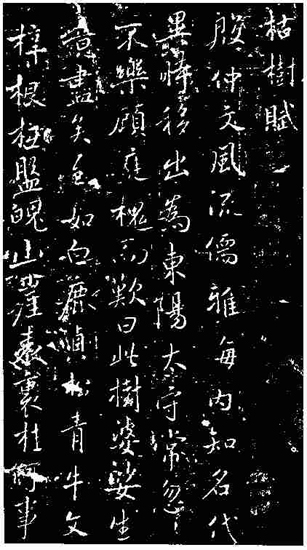 枯樹賦
殷仲文風流儒雅海内知名代
異時移出爲東陽太守常忽〻
不樂顧庭槐而歎曰此樹婆娑生
意盡矣至如白鹿貞松青牛文
梓根柢盤魄山崖表裏桂何事